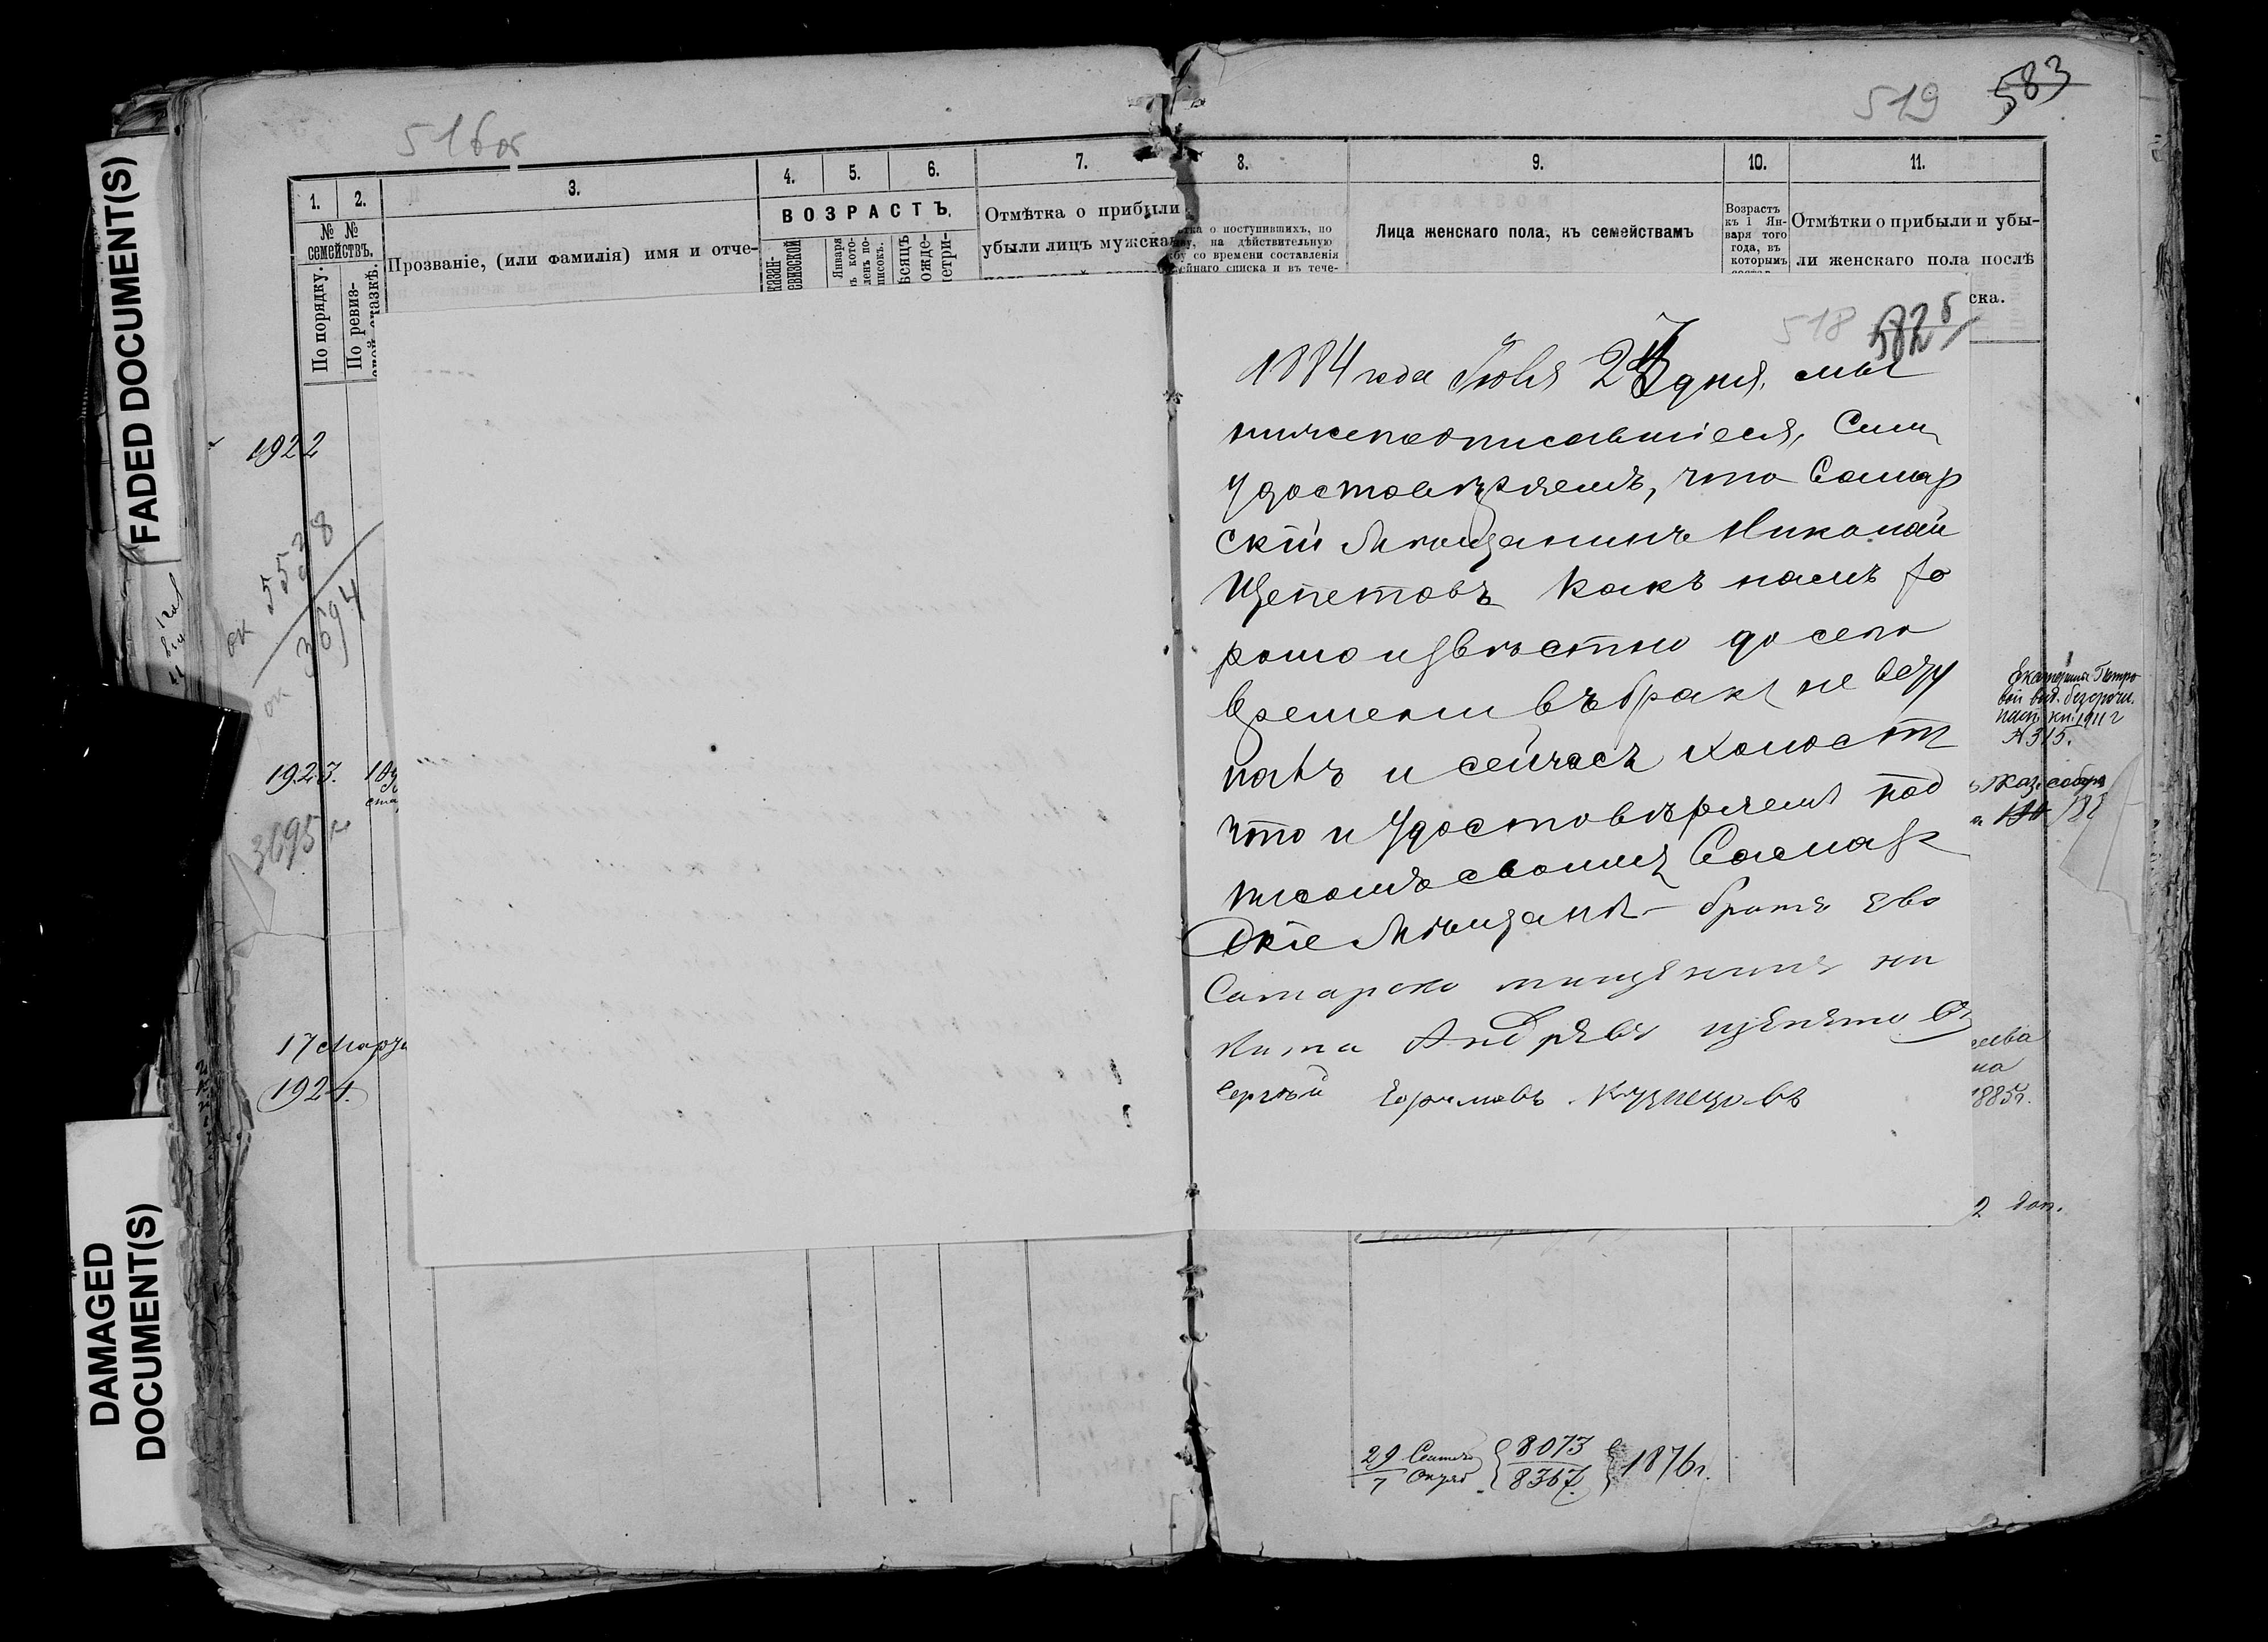 FADED DOCUMENT(S)
DAMAGED
DOCUMENT(S)
516 об
519 583
1. 2. 3. 4. 5. 6. 7. 8. 9. 10. 11.
№ №
семействъ.
По порядку.
По ревиз-
Прозваніе, (или фамилія) имя и отче-
ВОЗРАСТЪ.
Отмѣтка о прибыли
убыли лицъ мужска
о поступившихъ, по
на дѣйствительную
со времени составленія
списка и въ тече-
Лица женскаго пола, къ семействамъ
Возрастъ
къ 1 Ян-
варя того
года, въ
которымъ
Отмѣтки о прибыли и убы-
ли женскаго пола послѣ
ска.
1922
ок 5528
ок 3694
1923.
3695
17 Марта
1924.
518 582 б
1884 года Іюля 27 дня, мы
нижеподписавшіеся, Симъ
удостовѣряемъ, что Самар
скій Мѣщанинъ Николай
Щепетовъ какъ намъ хо
рошо извѣстно до сего
времени въ бракъ не всту
палъ и сейчасъ холостъ
что и удостовѣряемъ под
писомъ своимъ Самар
скіе Мѣщанѣ - братъ ево
Самарско мищянинъ ни
кита Андрѣвъ щепетовъ
Сергѣй Кузнецовъ
Екатерина Петро
вой выд. безсрочн.
пасп. кн. 1911 г
№ 315.
1885г.
2 доп.
29 Сентяб
7 Октяб
8073
8367
1876г.